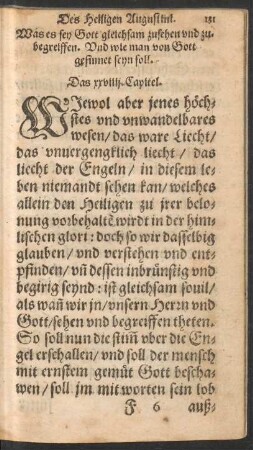 Des Heiligen Augustini. 151
Was es sey Gott gleichsam zusehen vnd zu-
begreiffen. Vnd wie man von Gott
gesinnet seyn soll.
Das xxviij. Capitel.
WIewol aber jenes höch-
stes vnd vnwandelbares
wesen / das ware Liecht /
das vnuergengklich liecht / das
liecht der Engeln / in diesem le-
ben niemandt sehen kan / welches
allein den Heiligen zu jrer belo-
nung vorbehaltē wirdt in der him-
lischen glori : doch so wir dasselbig
glauben / vnd verstehen vnd ent-
pfinden / vñ dessen inbrünstig vnd
begirig seynd : ist gleichsam souil /
als wañ wir jn / vnsern Herrn vnd
Gott / sehen vnd begreiffen theten.
So soll nun die stim̃ vber die En-
gel erschallen / vnd soll der mensch
mit ernstem gemüt Gott bescha-
wen / soll jm mit worten sein lob
F 6 auß-